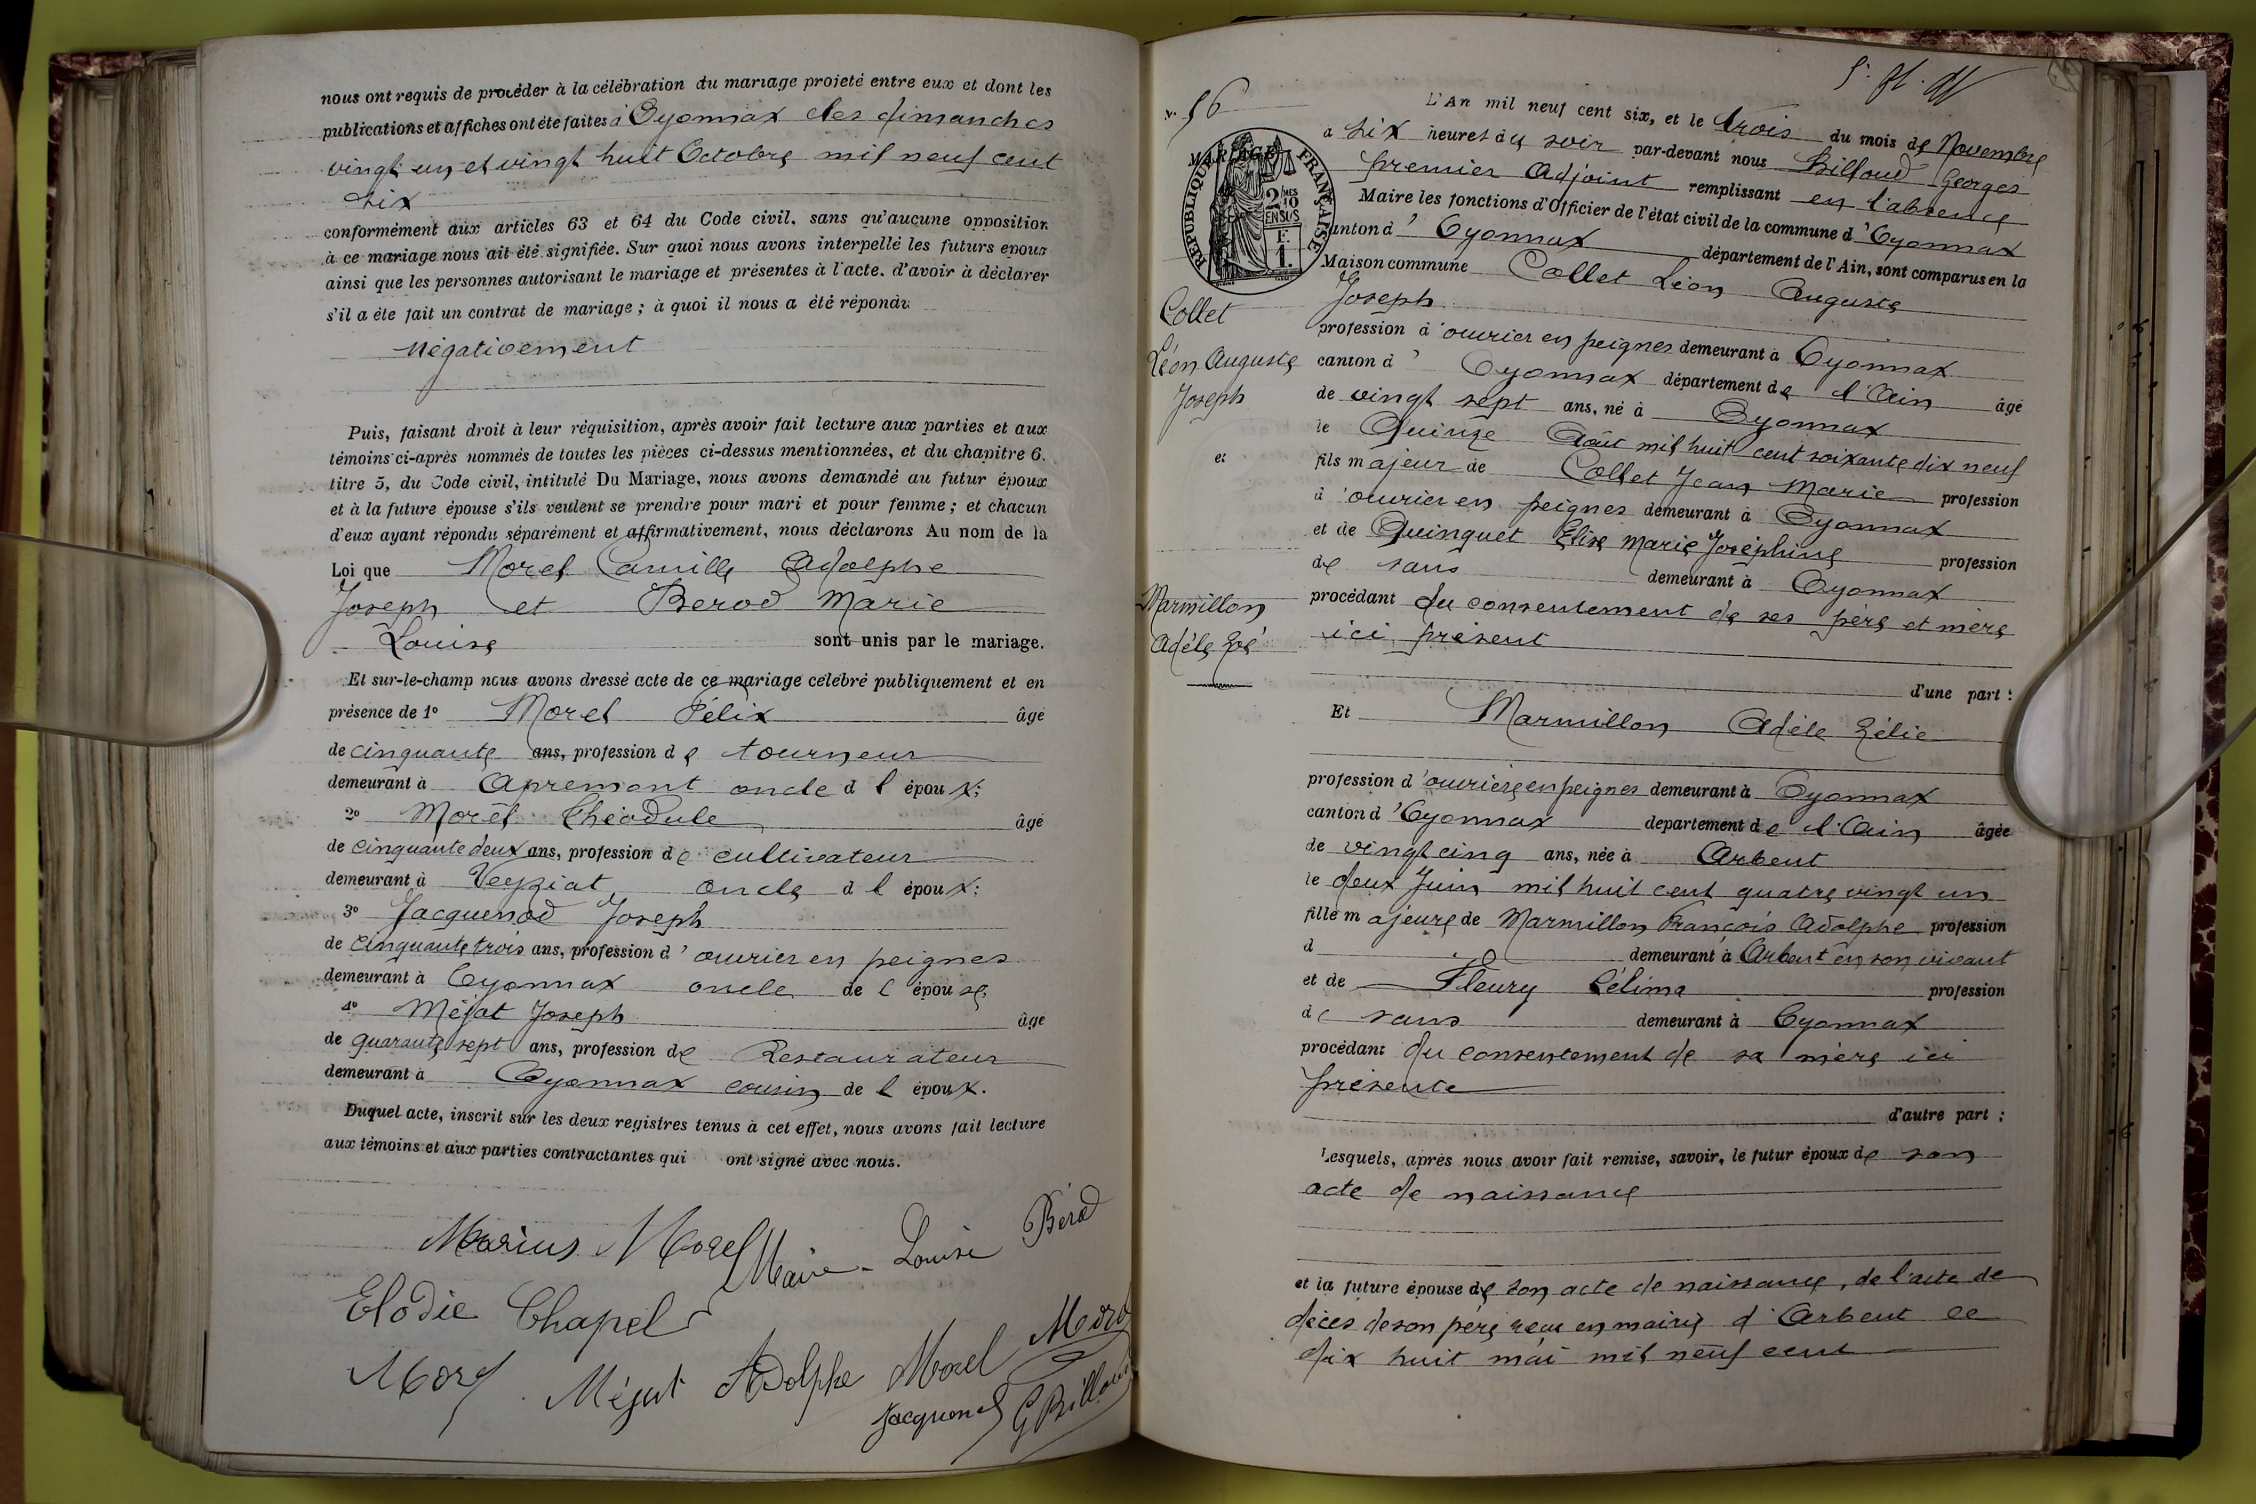 nous ont requis de procéder à la célébration du mariage projeté entre eux et dont les
publications et affiches ont été faites à Oyonnax les dimanches
vingt un et vingt huit Octobre mil neuf cent
six
conformément aux articles 63 et 64 du Code civil, sans qu'aucune opposition
à ce mariage nous ait été signifiée. Sur quoi nous avons interpellé les futurs époux
ainsi que les personnes autorisant le mariage et présentes à l'acte, d'avoir à déclarer
s'il a été fait un contrat de mariage ; à quoi il nous a été répondu
négativement
Puis, faisant droit à leur réquisition, après avoir fait lecture aux parties et aux
témoins ci-après nommés de toutes les pièces ci-dessus mentionnées, et du chapitre 6.
titre 5, du Code civil, intitulé Du Mariage, nous avons demandé au futur époux
et à la future épouse s'ils veulent se prendre pour mari et pour femme ; et chacun
d'eux ayant répondu séparément et affirmativement, nous déclarons Au nom de la
Loi que Morel Camille Adolphe
Joseph et Berod Marie
Louise sont unis par le mariage.
Et sur-le-champ nous avons dressé acte de ce mariage célébré publiquement et en
présence de 1° Morel Félix âgé
de cinquante ans, profession de tourneur
demeurant à Apremont oncle d l époux;
2° Morel Théodule âgé
de cinquante deux ans, profession de cultivateur
demeurant à Veyziat, oncle d l époux;
3° Jacquenod Joseph
de cinquante trois ans, profession d'ouvrier en peignes
demeurant à Oyonnax oncle de l épouse;
4° Méjat Joseph âgé
de quarante sept ans, profession de Restaurateur
demeurant à Oyonnax cousin de l époux.
Duquel acte, inscrit sur les deux registres tenus à cet effet, nous avons fait lecture
aux témoins et aux parties contractantes qui ont signé avec nous.
Marius Morel Marie-Louise Bérod
Elodie Chapel
Morel Méjat Adolphe Morel Morel
Jacquenod G Billoud
N° 56
L'An mil neuf cent six, et le trois du mois de Novembre
à six heures du soir par-devant nous Billoud Georges
premier Adjoint remplissant en l'absence
Maire les fonctions d'Officier de l'état civil de la commune d'Oyonnax
canton d'Oyonnax département de l'Ain, sont comparus en la
Maison commune Collet Léon Auguste
Joseph
MARIAGE
RÉPUBLIQUE FRANÇAISE
2/10 MES EN SUS
F. 1.
Collet
Léon Auguste
Joseph
et
Marmillon
Adèle Zoé
profession d'ouvrier en peignes demeurant à Oyonnax
canton d'Oyonnax département de l'Ain âgé
de vingt sept ans, né à Oyonnax
le Quinze Août mil huit cent soixante dix neuf
fils majeur de Collet Jean Marie profession
d'ouvrier en peignes demeurant à Oyonnax
et de Quinquet Elise Marie Joséphine profession
de sans demeurant à Oyonnax
procédant du consentement de ses père et mère
ici présent
d'une part :
Et Marmillon Adèle Zélie
profession d'ouvrière en peignes demeurant à Oyonnax
canton d'Oyonnax département de l'Ain âgée
de vingt cinq ans, née à Arbent
le deux Juin mil huit cent quatre vingt un
fille majeure de Marmillon François Adolphe profession
d demeurant à Arbent en son vivant
et de Fleury Célima profession
de sans demeurant à Oyonnax
procédant du consentement de sa mère ici
présente
d'autre part :
Lesquels, après nous avoir fait remise, savoir, le futur époux de son
acte de naissance
et la future épouse de son acte de naissance, de l'acte de
décès de son père reçu en mairie d'Arbent le
dix huit mai mil neuf cent